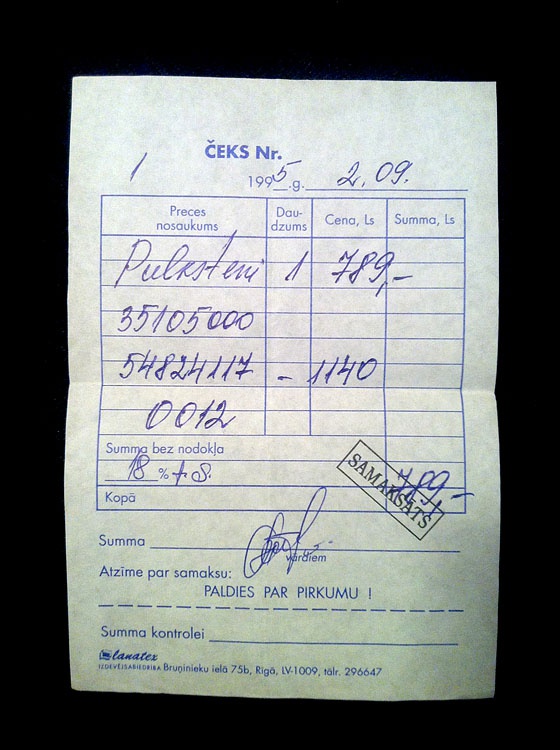 ČEKS Nr.
1
1995.g. 2.09.
Preces nosaukums Daudzums Cena, Ls Summa, Ls
Pulksteni 1 789,-
35105000
54824117 - 1140
0012
Summa bez nodokļa
18 %
Kopā 789,-
SAMAKSĀTS
Summa
vārdiem
Atzīme par samaksu:
PALDIES PAR PIRKUMU !
Summa kontrolei
lanatex
IZDEVĒJSABIEDRĪBA Bruņinieku ielā 75b, Rīgā, LV-1009, tālr. 296647